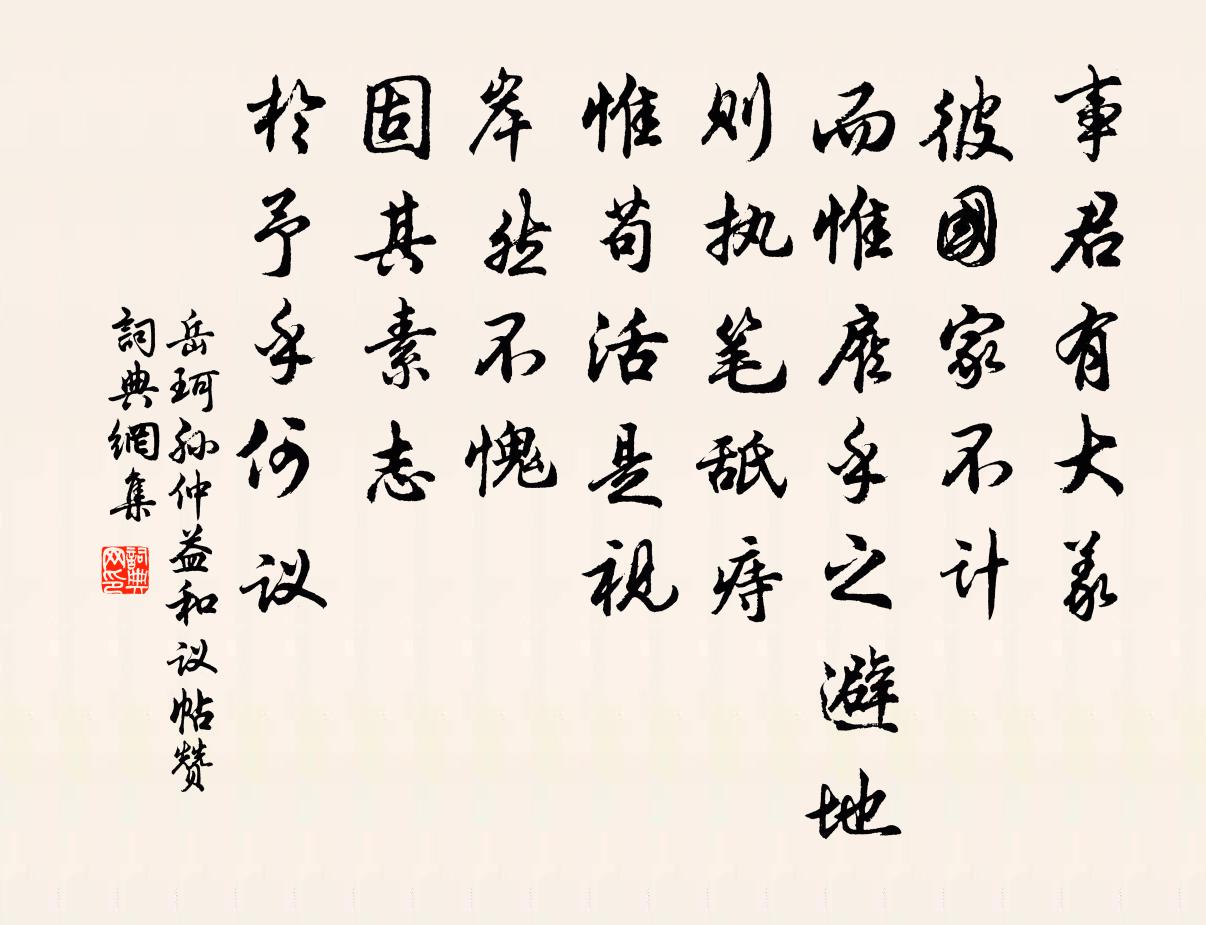 事君有大义
彼國家不计
而惟府乎之避地
则执笔舐痔
惟苟活是视
岸然不愧
固其素志
於予乎何议
岳珂孙仲益和议帖赞
詞典網集
詞典网印